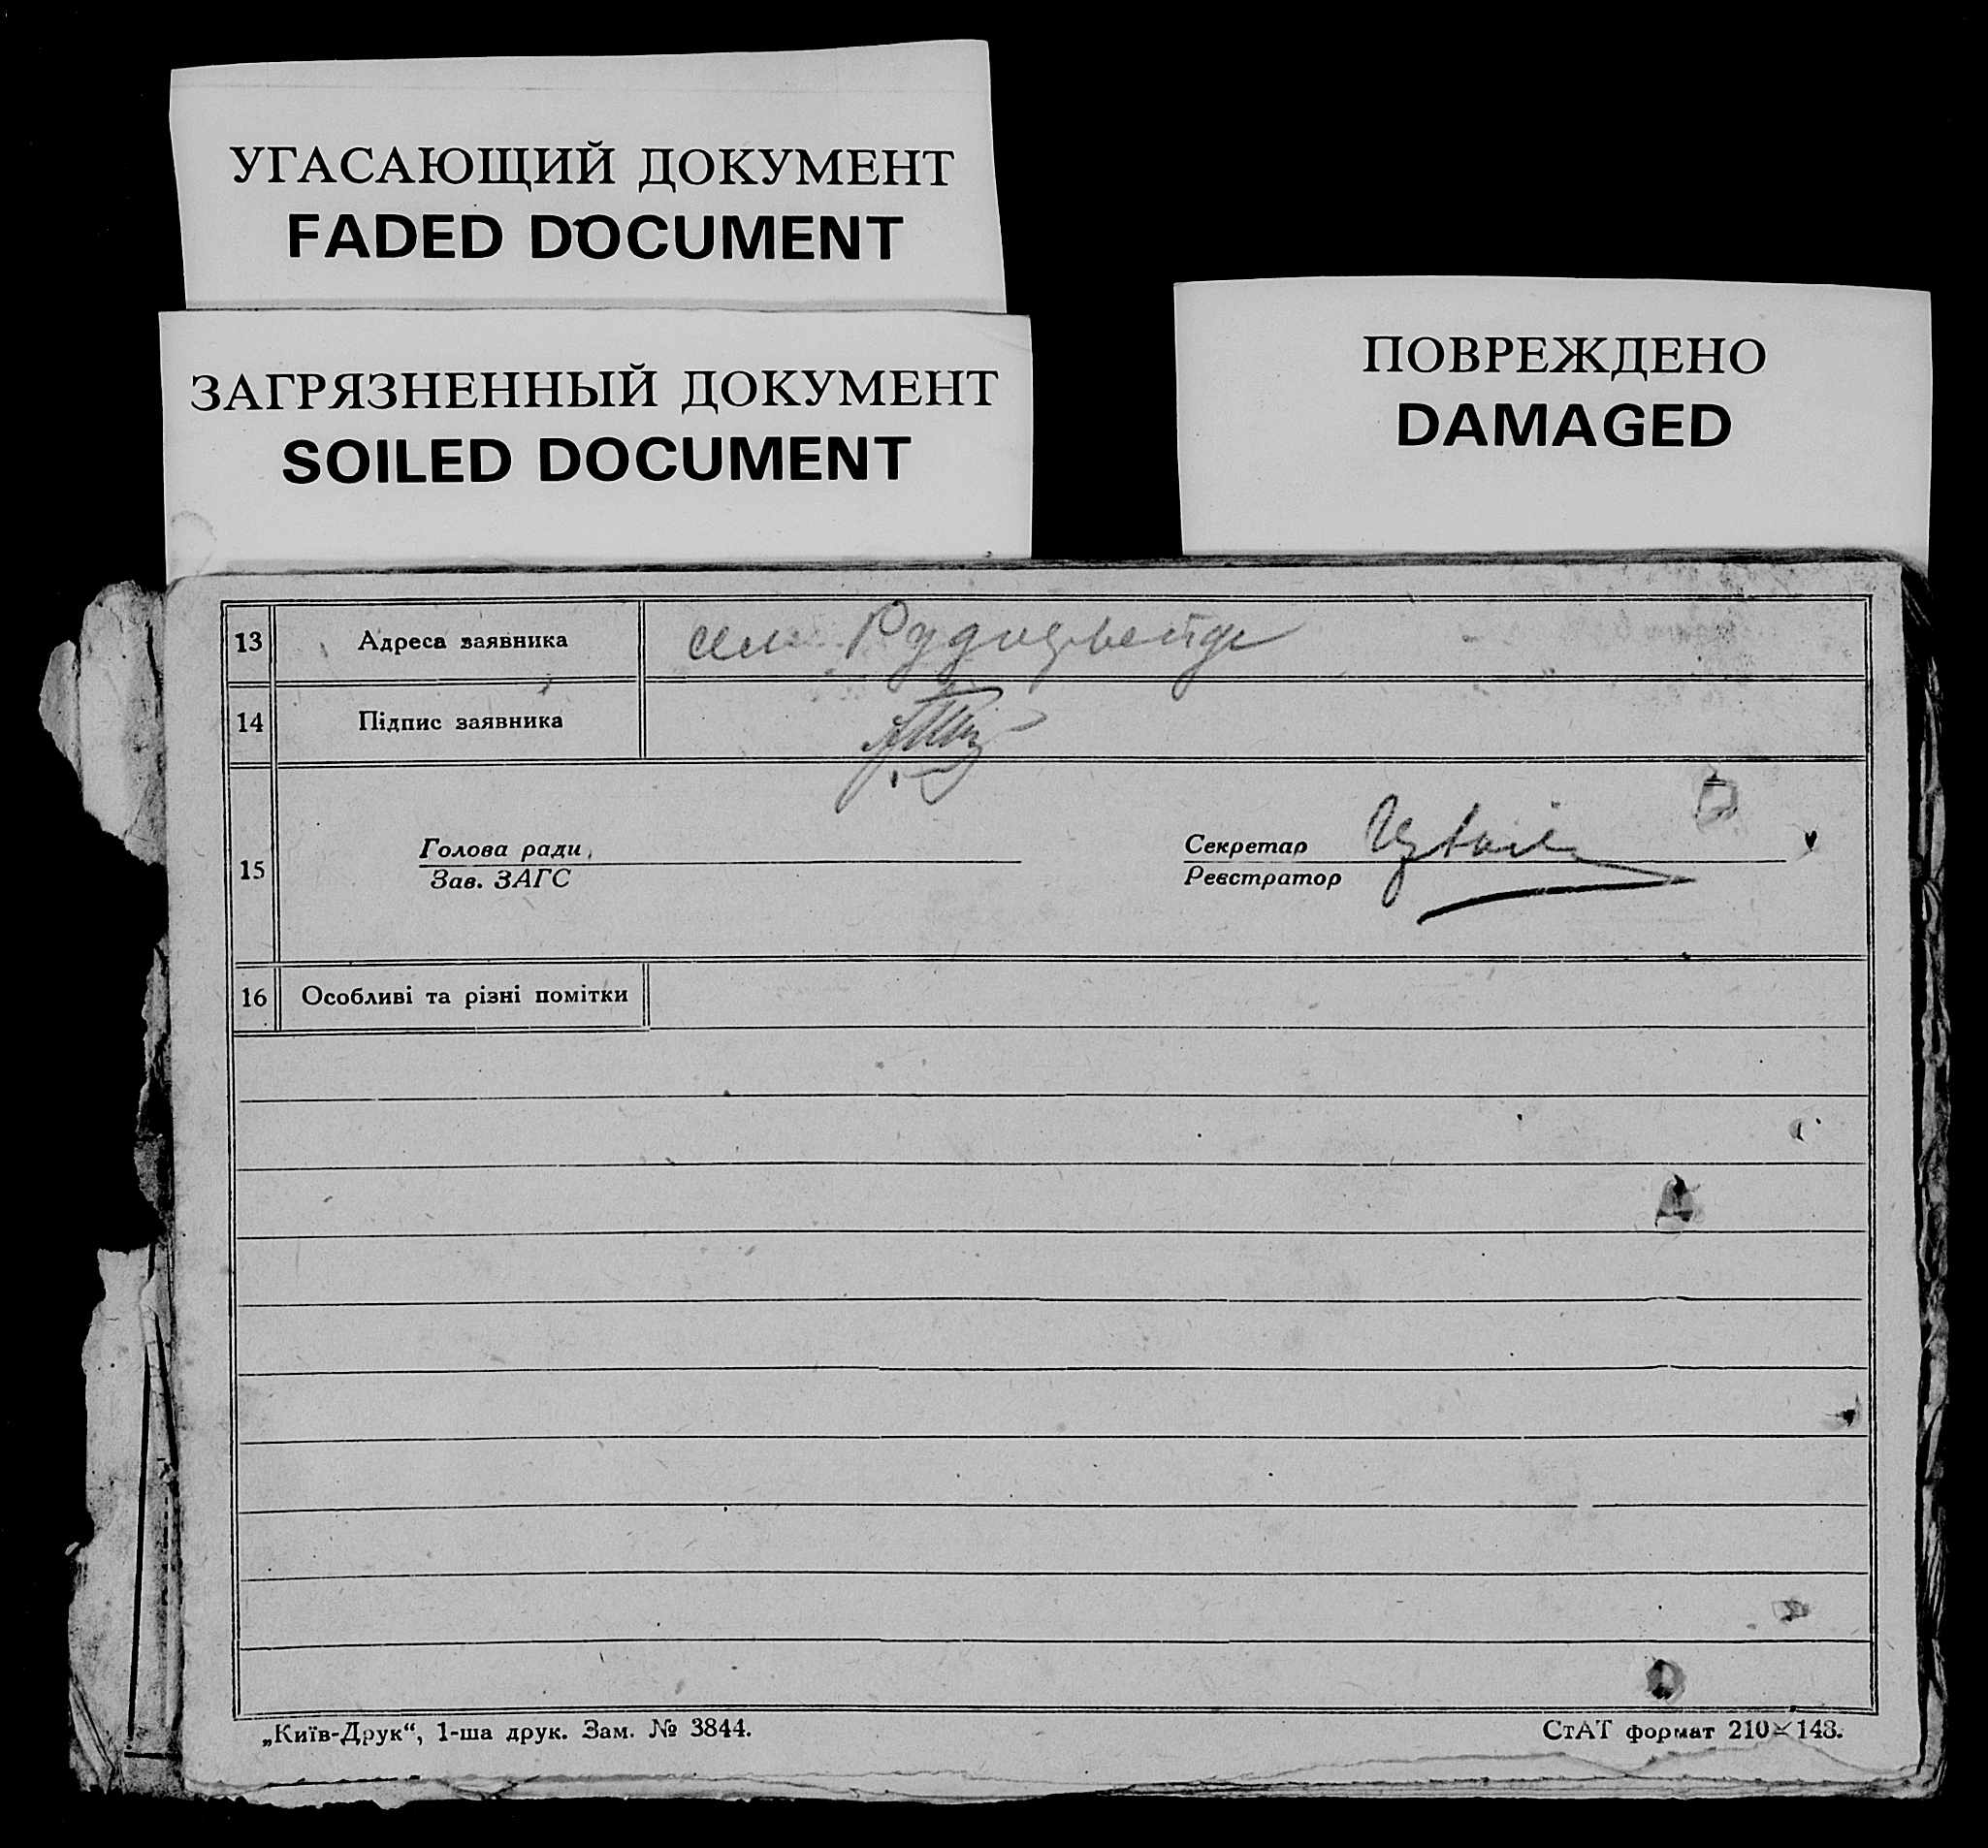 УГАСАЮЩИЙ ДОКУМЕНТ
FADED DOCUMENT
ЗАГРЯЗНЕННЫЙ ДОКУМЕНТ
SOILED DOCUMENT
ПОВРЕЖДЕНО
DAMAGED
13 Адреса заявника
14 Підпис заявника
15 Голова ради
Зав. ЗАГС
Секретар
Реєстратор
16 Особливі та різні помітки
„Київ-Друк“, 1-ша друк. Зам. № 3844.
СтАТ формат 210×148.